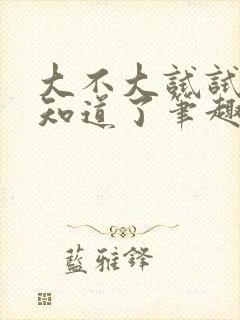 大不大試試
知道了筆趣
藍雅鋒